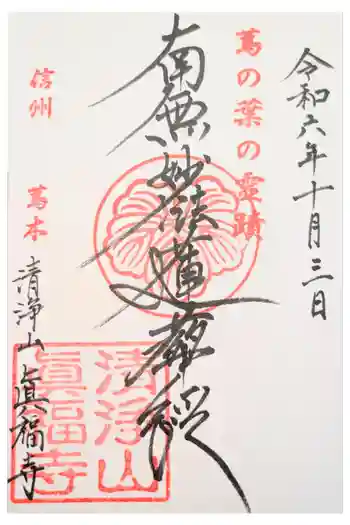 令和六年十月三日
蔦の葉の霊蹟
南無妙法蓮華経
信州 蔦木
清浄山 眞福寺
清浄山
眞福寺